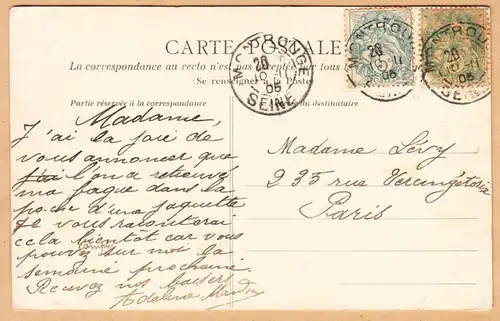 CARTE POSTALE
La correspondance au recto n'est pas acceptée par tous les pays
Se renseigner à la Poste
Partie réservée à la correspondance
du destinataire
MONTROUGE
20
05
SEINE
MONTROU
20
05
SEINE
Madame,
J'ai la joie de
vous annoncer que
l'on a retrouvé
ma bague dans la
poche d'une jaquette
Je vous raconterai
cela bientôt car vous
pouvez compter sur moi la
semaine prochaine.
Recevez nos baisers
Adeline
Madame Lévy
235 rue Vercingétorix
Paris